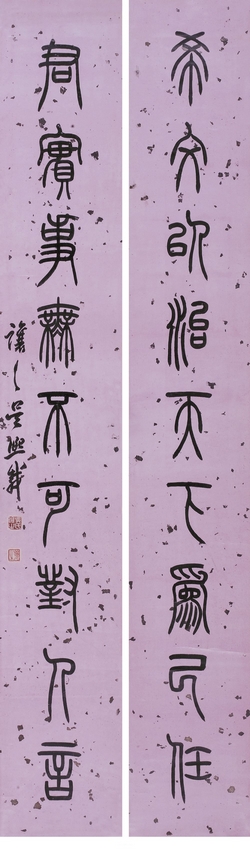 希文以治天下爲己任
君實事無不可對人言
讓之吳熙載